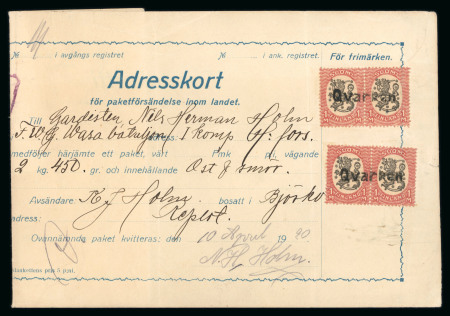 № i avgångs registret. № i ank. registret. För frimärken.
Adresskort
för paketförsändelse inom landet.
Till Gardisten Nils Herman Holm
Wasa bataljon, 1 komp H:fors.
medföljer härjämte ett paket, värt Fmk pi, vägande
2 kg. 450. gr. och innehållande Ost & smör.
Avsändare: K J Holm bosatt i Björkö
adress: Replot.
Ovannämnda paket kvitteras: den 10 April 1920
N. H. Holm.
Blankettens pris 5 p:ni.
Qvarken
Qvarken